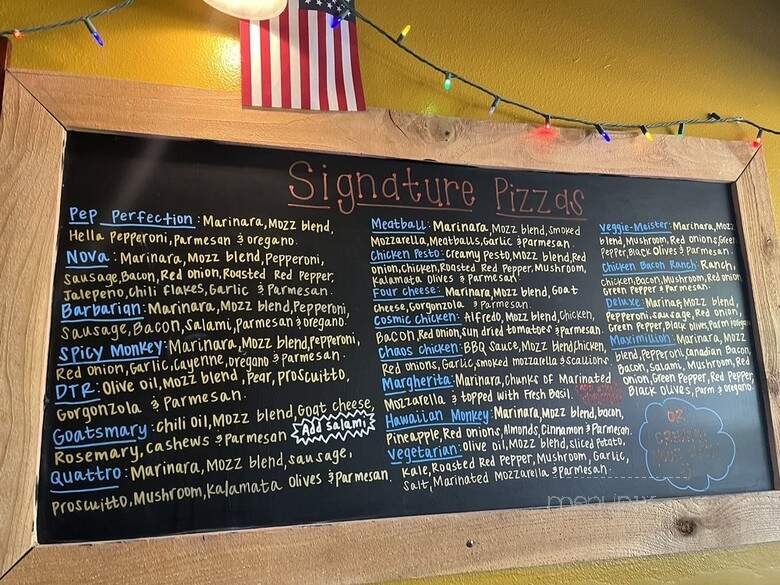 Signature Pizzas
Pep Perfection: Marinara, Mozz blend,
Hella Pepperoni, Parmesan & oregano.
Nova: Marinara, Mozz blend, Pepperoni,
Sausage, Bacon, Red onion, Roasted Red Pepper,
Jalepeno, Chili flakes, Garlic & Parmesan.
Barbarian: Marinara, Mozz blend, Pepperoni,
Sausage, Bacon, Salami, Parmesan & oregano.
Spicy Monkey: Marinara, Mozz blend, Pepperoni,
Red onion, Garlic, Cayenne, oregano & Parmesan.
DTR: Olive oil, Mozz blend, Pear, Proscuitto,
Gorgonzola & Parmesan.
Goatsmary: Chili oil, Mozz blend, Goat cheese,
Rosemary, Cashews & Parmesan Add Salami
Quattro: Marinara, Mozz blend, sausage,
Proscuitto, Mushroom, Kalamata Olives & Parmesan.
Meatball: Marinara, Mozz blend, Smoked
Mozzarella, Meatballs, Garlic & Parmesan.
Chicken Pesto: Creamy Pesto, Mozz blend, Red
onion, Chicken, Roasted Red Pepper, Mushroom,
Kalamata Olives & Parmesan.
Four Cheese: Marinara, Mozz blend, Goat
Cheese, Gorgonzola & Parmesan.
Cosmic Chicken: Alfredo, Mozz blend, Chicken,
Bacon, Red onion, sun dried tomatoes & Parmesan.
Chaos Chicken: BBQ Sauce, Mozz blend, Chicken,
Red onions, Garlic, smoked mozzarella & scallions
Margherita: Marinara, Chunks of Marinated
Mozzarella & topped with Fresh Basil.
Hawaiian Monkey: Marinara, Mozz blend, bacon,
Pineapple, Red Onions, Almonds, Cinnamon & Parmesan.
Vegetarian: Olive oil, Mozz blend, sliced Potato,
Kale, Roasted Red Pepper, Mushroom, Garlic,
Salt, Marinated Mozzarella & Parmesan.
Veggie-Meister: Marinara, Moz
blend, Mushroom, Red onions, Gree
Pepper, Black Olives & Parmesan.
Chicken Bacon Ranch: Ranch,
Chicken, Bacon, Mushroom, Red onion
Green Pepper & Parmesan.
Deluxe: Marinara, Mozz blend,
Pepperoni, Sausage, Red Onion,
Green Pepper, Black olives, Parm & oregano
Maximilion: Marinara, Mozz
blend, Pepperoni, Canadian Bacon,
Bacon, Salami, Mushroom, Red
onion, Green Pepper, Red Pepper,
Black Olives, Parm & oregano
OR
menupix